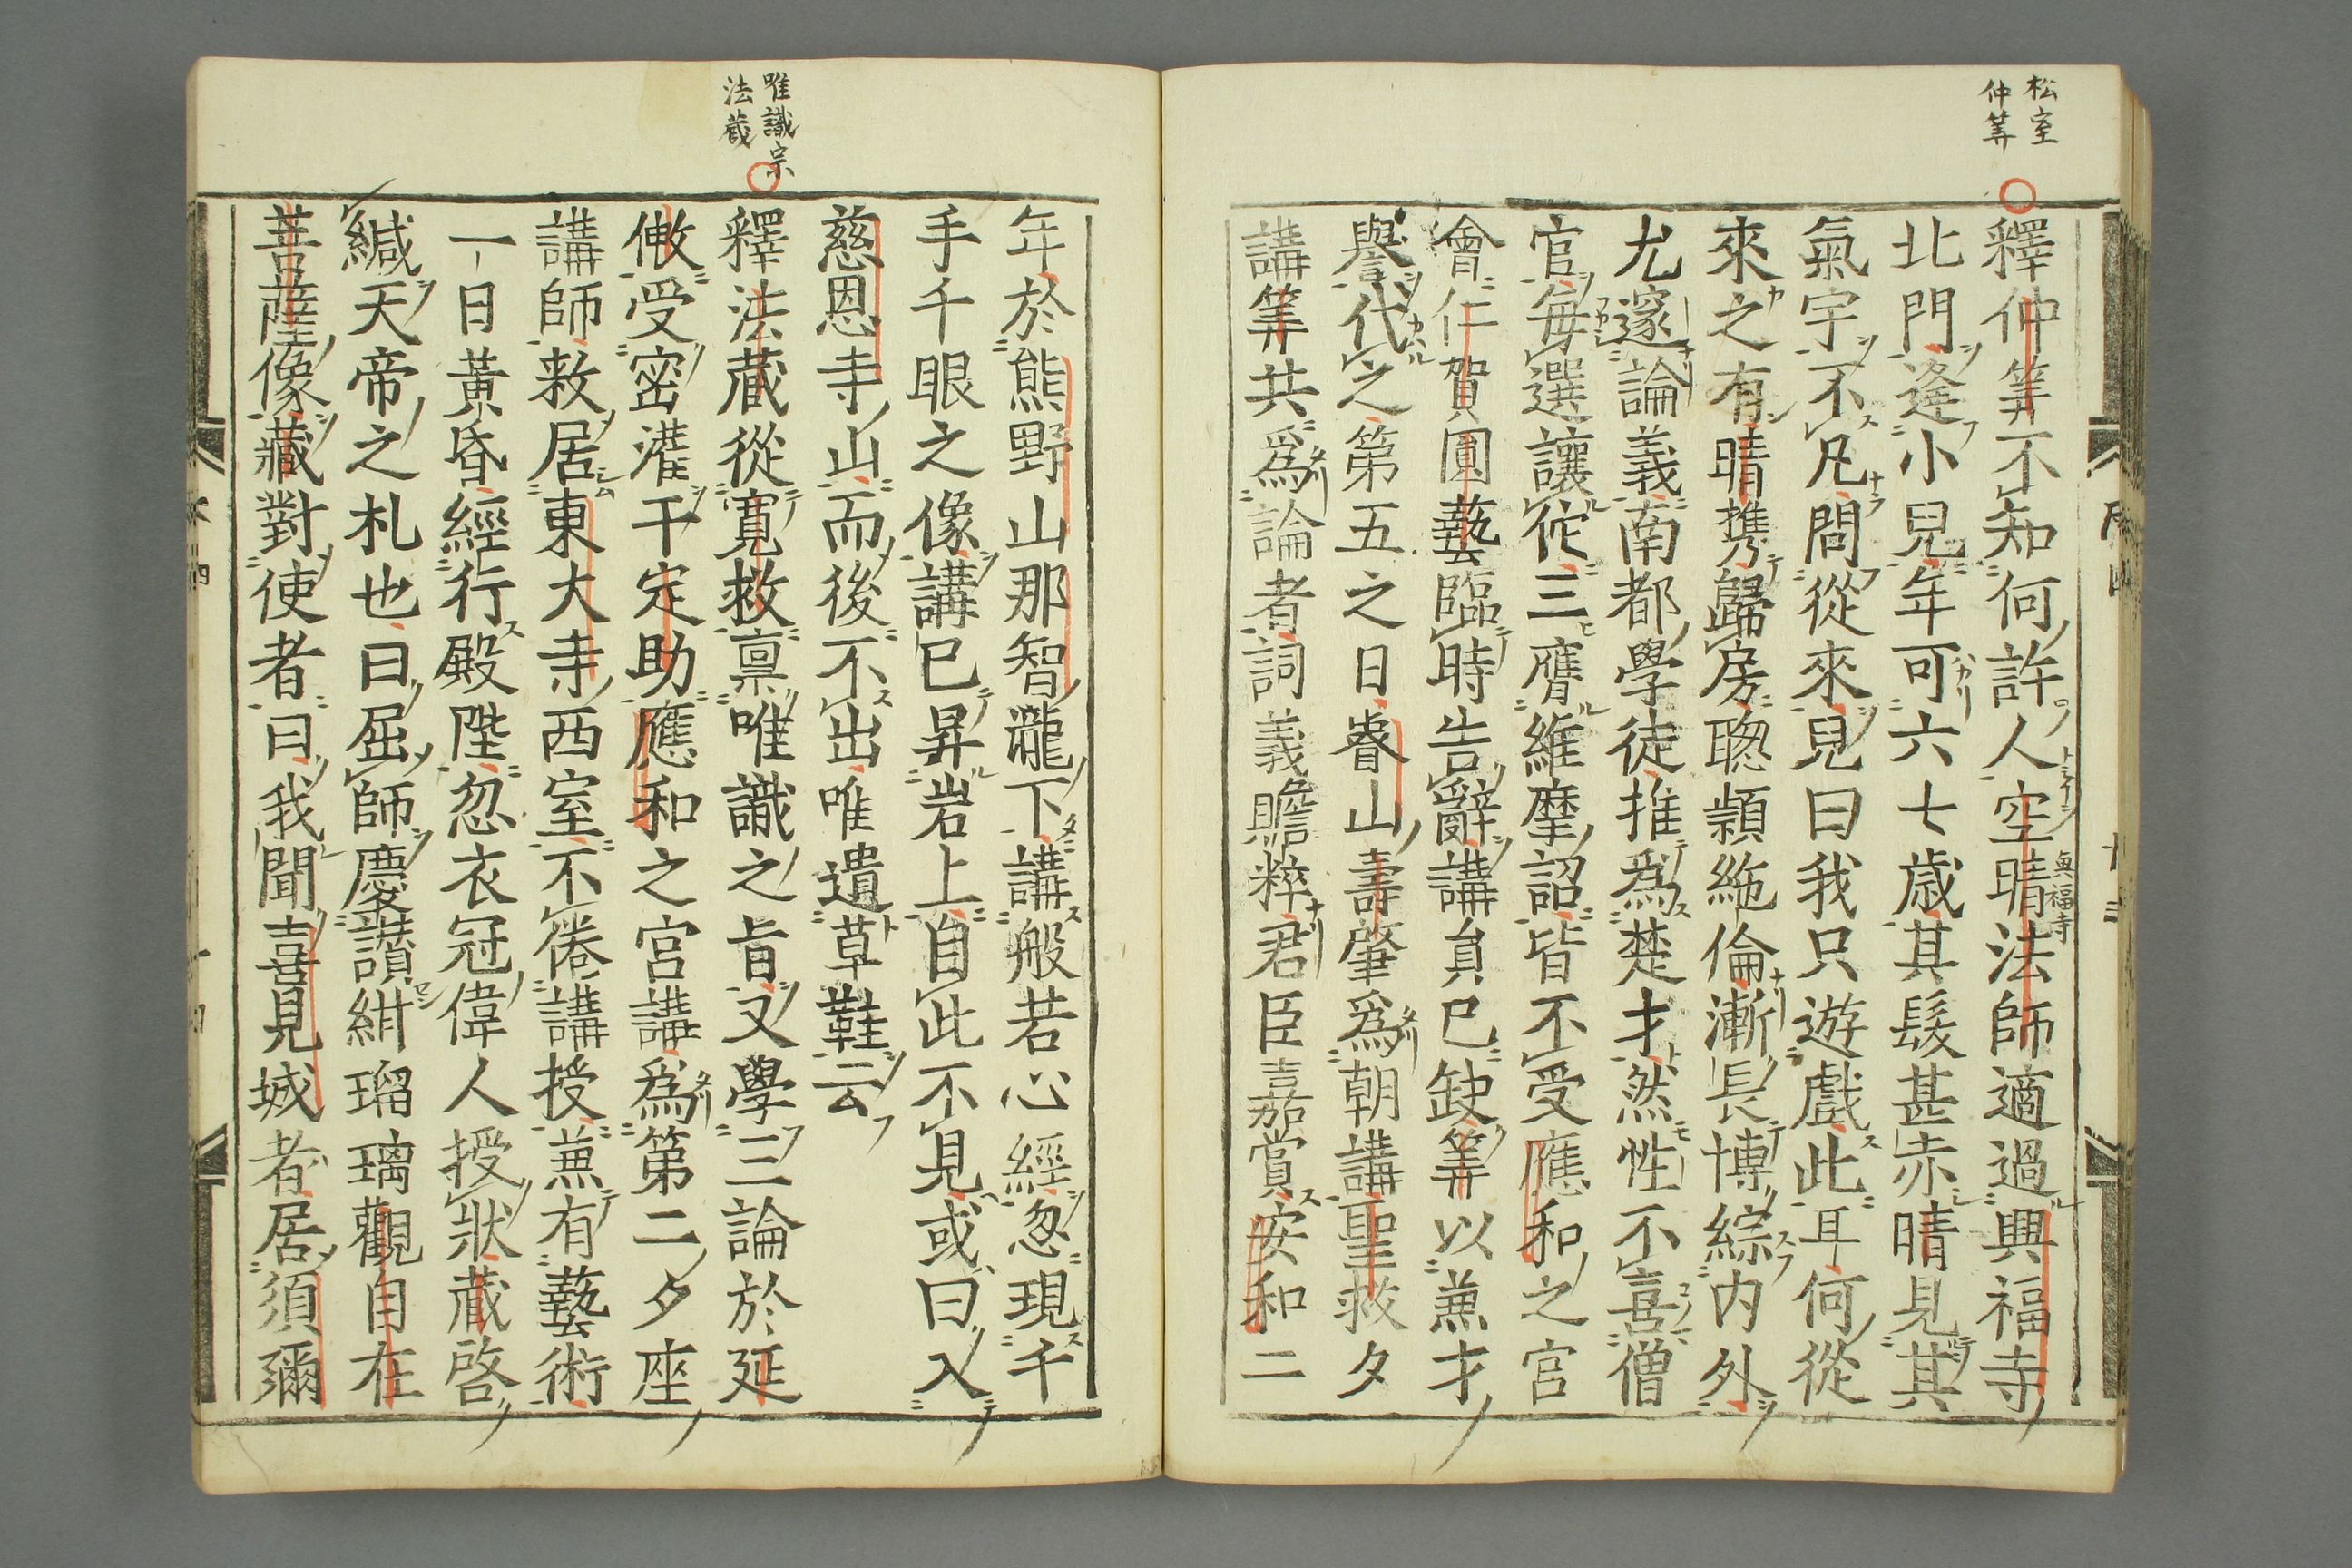 松室
仲筭
釋仲筭不知何許人空晴法師適過興福寺
眞福寺
北門逢小兒年可六七歳其髮甚赤晴見其
氣宇不凡問從來兒曰我只遊戲此耳何從
來之有晴携歸房聰頴絶倫漸長博綜内外
尤邃論義南都學徒推爲楚才然性不喜僧
官毎選讓佗三膺維摩詔皆不受應和之宮
會仁賀圓藝臨時告辭講員已缺筭以兼才
譽代之第五之日睿山壽肇爲朝講聖救夕
講筭共爲論者詞義贍粹君臣嘉賞安和二
年於熊野山那智瀧下講般若心經忽現千
手千眼之像講已昇岩上自此不見或曰入
慈恩寺山而後不出唯遺草鞋云
唯識宗
法蔵
釋法蔵從寛救禀唯識之旨又學三論於延
僌受密灌于定助應和之宮講爲第二夕座
講師救居東大寺西室不倦講授兼有藝術
一日黃昏經行殿陛忽衣冠偉人授狀蔵啓
緘天帝之札也曰屈師慶讃紺瑠璃觀自在
菩薩像藏對使者曰我聞喜見城者居須彌